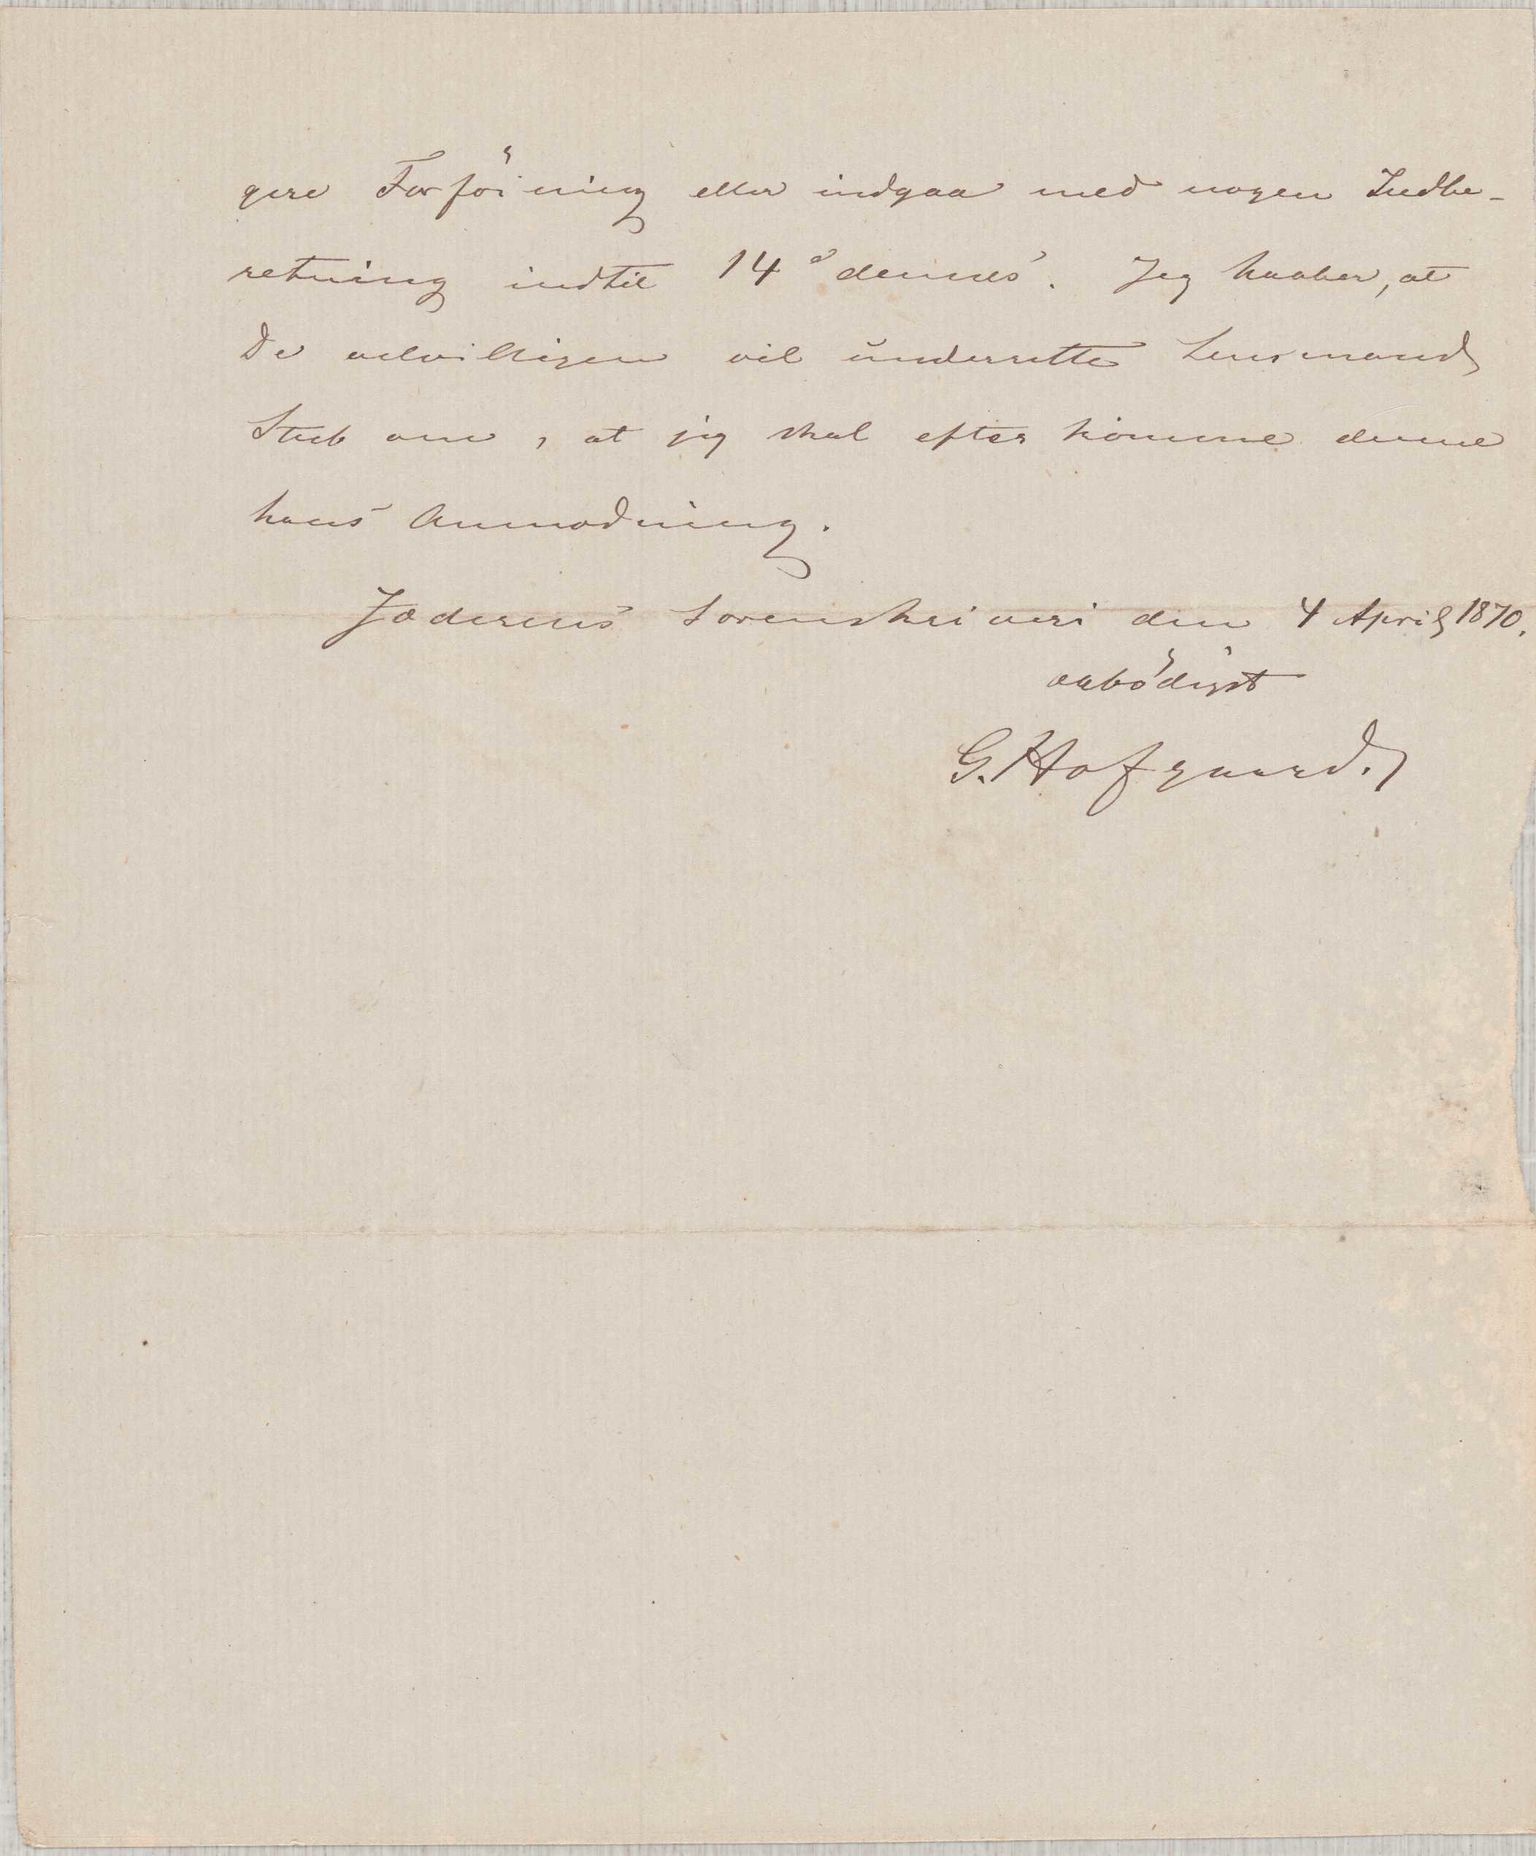 gere Forföining eller indgaa med nogen Indbe-
retning indtil 14d dennes. Jeg haaber, at
De velvilligen vil underrette Lensmand
Stub om, at jeg skal efterkomme denne
hans Anmodning.
Jæderens Sorenskriveri den 4 April 1870.
ærbödigst
G. Hofgaard.